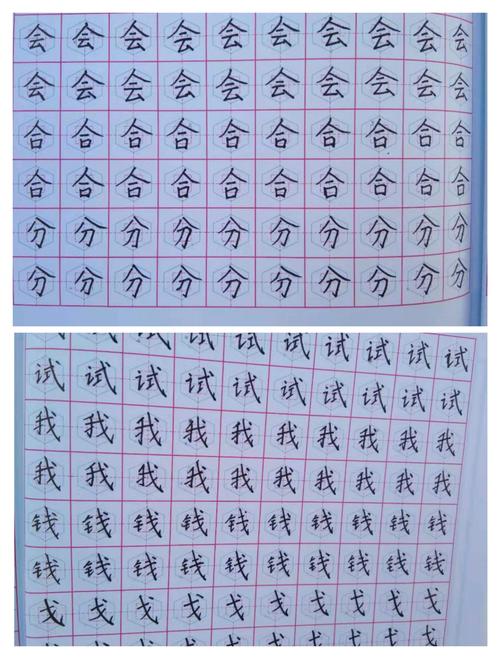 会会会会会会会会会会
会会会会会会会会会会
合合合合合合合合合合
合合合合合合合合合合
分分分分分分分分分分
分分分分分分分分分分
试试试试
试试试试试试试试试试
我我我我我我我我我我
我我我我我我我我我我
钱钱钱钱钱钱钱钱钱钱
钱钱钱钱钱钱钱钱钱钱
戈戈戈戈戈戈戈戈戈戈